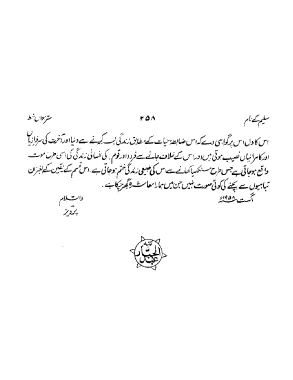 سلیم کے نام ۲۵۸ سترھواں خط
اس کا دل اس پر گواہی دے کہ اس ضابطۂ حیات کے مطابق زندگی بسر کرنے سے دنیا اور آخرت کی سرفرازیاں
اور کامرانیاں نصیب ہوتی ہیں اور اس کے خلاف جانے سے فرد اور قوم کی انسانی زندگی کی اسی طرح موت
واقع ہو جاتی ہے جس طرح سنکھیا کھانے سے اس کی طبیعی زندگی ختم ہو جاتی ہے۔ اس قسم کے یقین کے بغیر ان
تباہیوں سے بچنے کی کوئی صورت نہیں جن میں ہمارا معاشرہ گھر چکا ہے۔
والسلام
پرویز
اگست ۱۹۵۸ء